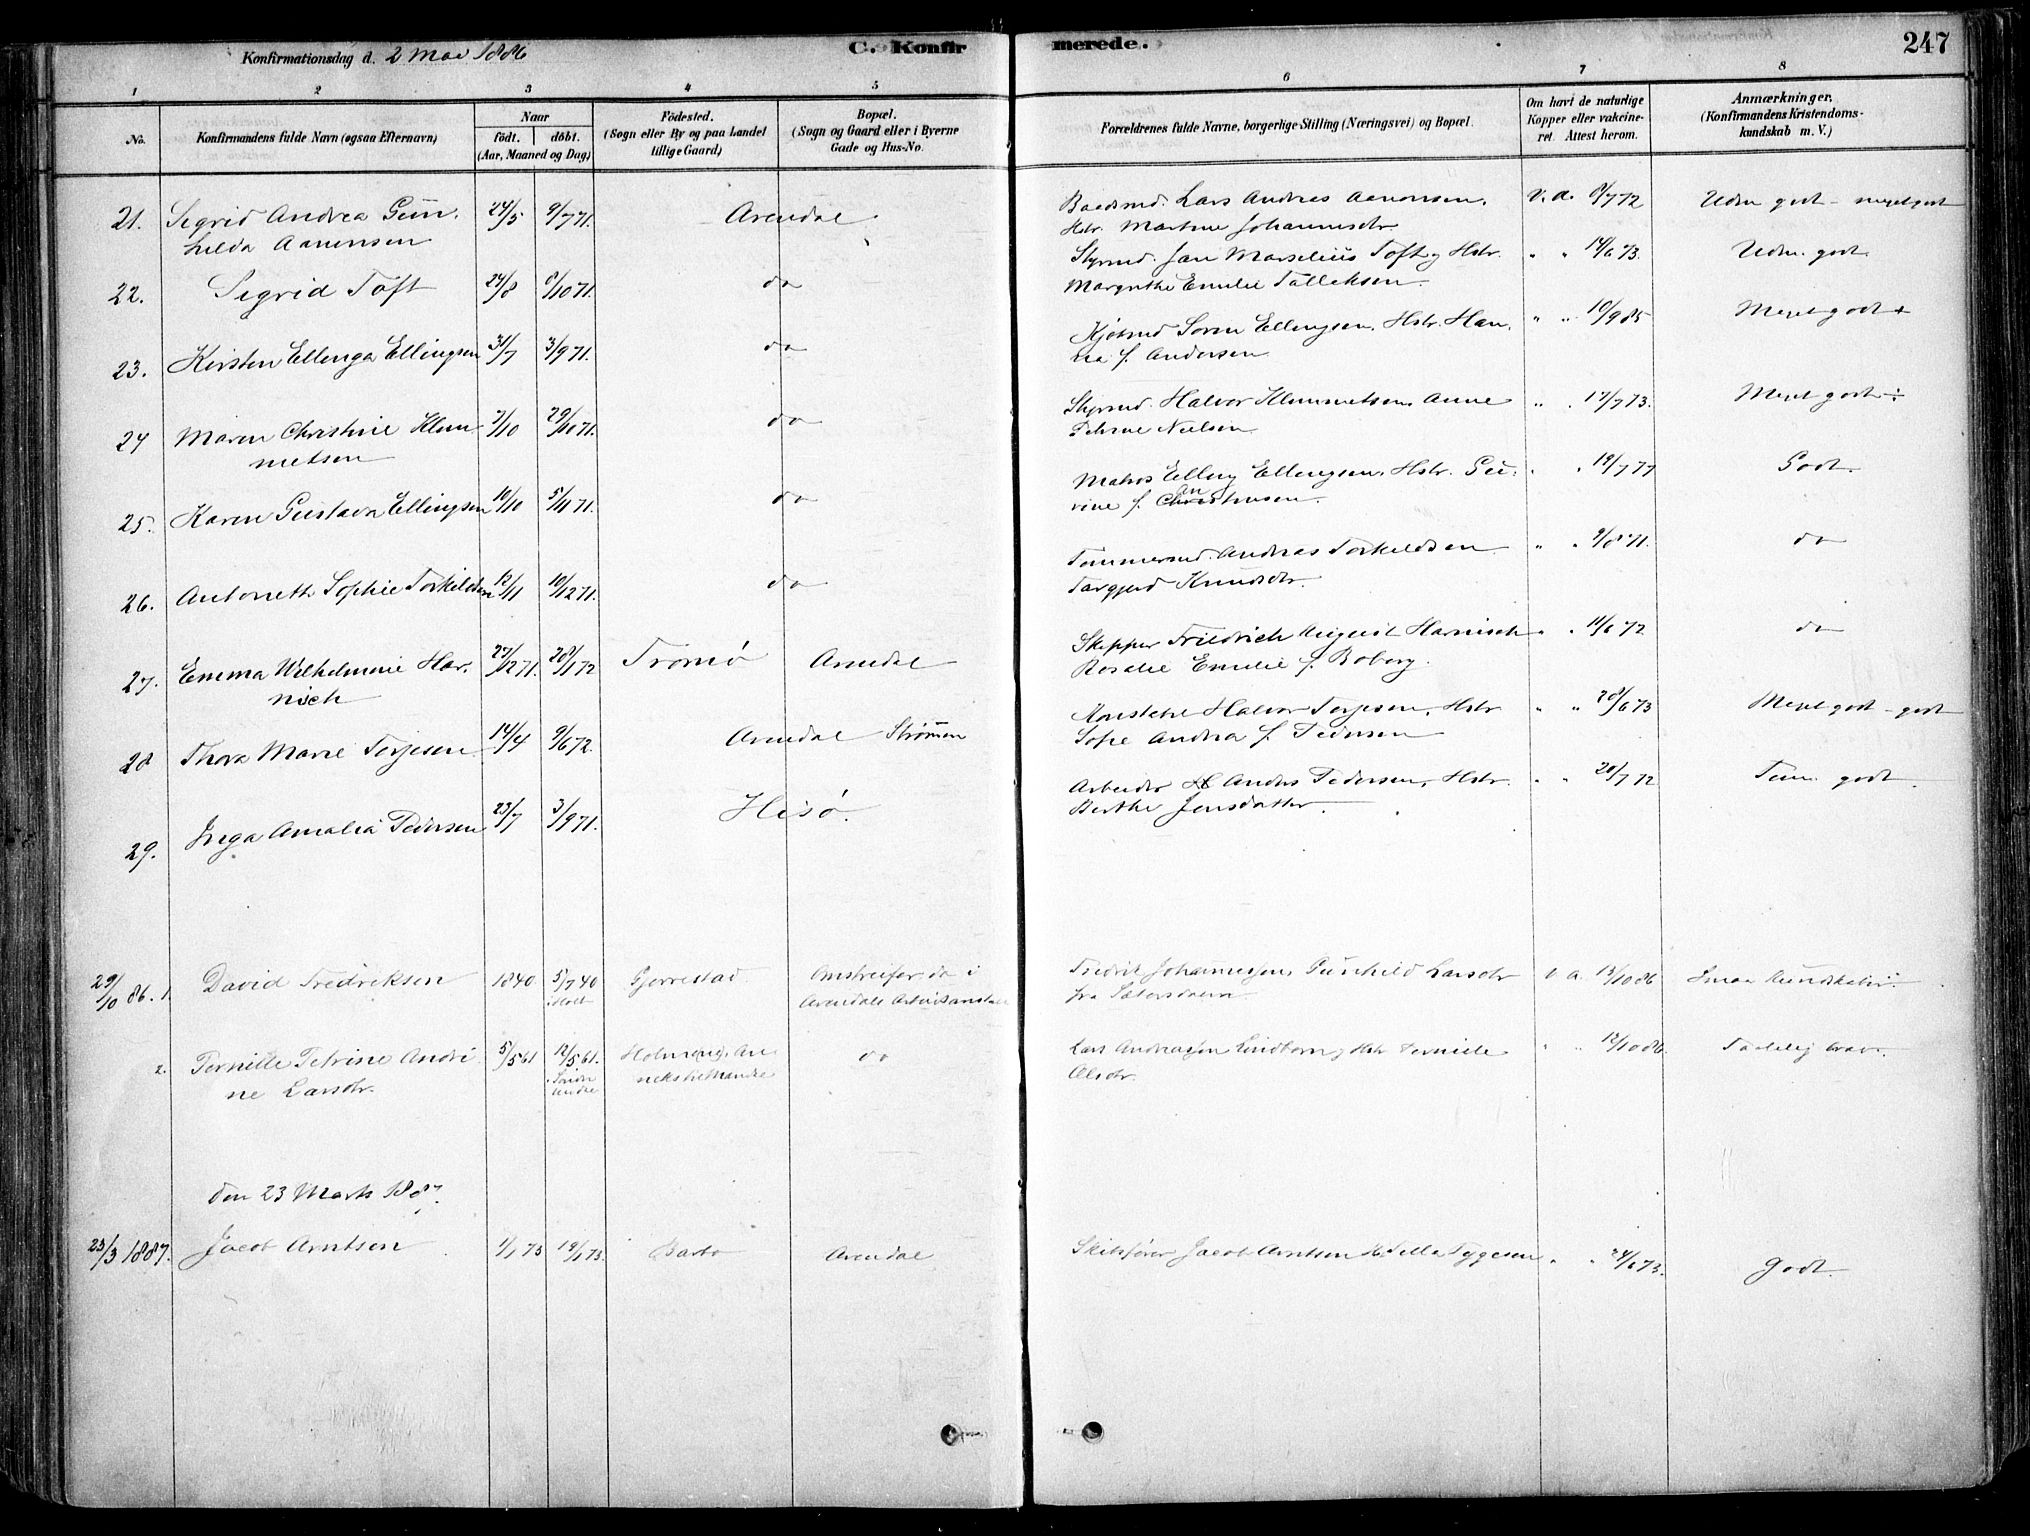 Konfirmationsdag d. 2 Mai 1886
C. Konfirmerede.
247
1 2 3 4 5 6 7 8
No.
Konfirmandens fulde Navn (ogsaa Efternavn)
Naar
födt. döbt.
(Aar, Maaned og Dag)
Födested.
(Sogn eller By og paa Landet
tillige Gaard)
Bopæl.
(Sogn og Gaard eller i Byerne
Gade og Hus-No.
Forældrenes fulde Navne, borgerlige Stilling (Næringsvei) og Bopæl.
Om havt de naturlige
Kopper eller vakcine-
ret. Attest herom.
Anmærkninger.
(Konfirmandens Kristendoms-
kundskab m. V.)
21. Sigrid Andrea Gun- 24/5 9/7 71. Arendal. Baadsmd. Lars Andreas Aanonsen, v. a. 8/7 72 Udm godt - megetgodt
hilda Aanonsen Hstr. Martine Johannesdr.
22. Sigrid Toft 24/8 8/10 71. do Styrmd. Jan Marselius Toft og Hstr. " " 14/6 73. Udm. godt.
Margrethe Emilie Talleksen.
23. Kirsten Ellenga Ellingsen 31/7 3/9 71. do Kjøbmd Søren Ellingsen, Hstr. Han- " " 10/9 85 Meget godt +
na f. Andersen
24 Maren Christine Klem- 7/10 29/10 71. do Styrmd. Halvor Klemmetsen, Anne " " 17/7 73. Meget godt ÷
metsen Petrine Nielsen
25. Karen Gustava Ellingsen 10/10 5/11 71. do Matros Elling Ellingsen, Hstr. Gu- " " 19/7 77 Godt.
rine f. Christensen.
26. Antoneth Sophie Torkildsen 12/11 10/12 71. do Tømmermd. Andreas Torkildsen " " 9/8 71. do
Targjerd Knudsdr.
27. Emma Wilhelmine Har- 27/12 71. 28/1 72 Tromø Arendal Skipper Friedrich August Harnisch " " 11/6 72 do
nisch Rosalie Emilie f. Boberg.
28 Thora Marie Terjesen 14/4 9/6 72. Arendal Strømmen Konstabel Halvor Terjesen, Hstr " " 28/6 73 Meget godt - godt
Sofie Andrea f. Pedersen
29. Inga Amalia Pedersen 23/7 3/9 71. Hisø. Arbeider Anders Pedersen, Hstr. " " 20/7 72 Tem. godt.
Berthe Jensdatter.
29/10 86. 1. David Fredriksen 1840 5/7 40 Gjerrestad Omstreifer, do i Fredrik Johannessen, Gunhild Larsdr v a. 13/10 86 Smaa Kundskaber.
i Holt Arendals Arbeidsanstalt fra Sætersdalen
2. Pernille Petrine Andri- 5/5 61 12/5 61. do Lars Andreasen Lindborn, Hstr Pernille " " 14/10 86.
ne Larsdr. Olsdr.
den 23 Marts 1887.
23/3 1887. Jacob Arntsen 1/1 73 19/1 73. Barbo Arendal Skibsfører Jacob Arntsen Tella Tygesen " " 24/6 73. Godt.